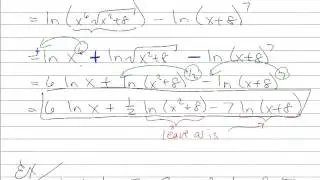 = ln(x⁶√(x²+8)) - ln(x+8)⁷
= ln x⁶ + ln√(x²+8) - ln(x+8)⁷
= 6 ln x + ln(x²+8)^(1/2) - ln(x+8)⁷
= 6 ln x + 1/2 ln(x²+8) - 7 ln(x+8)
leave as is
EX